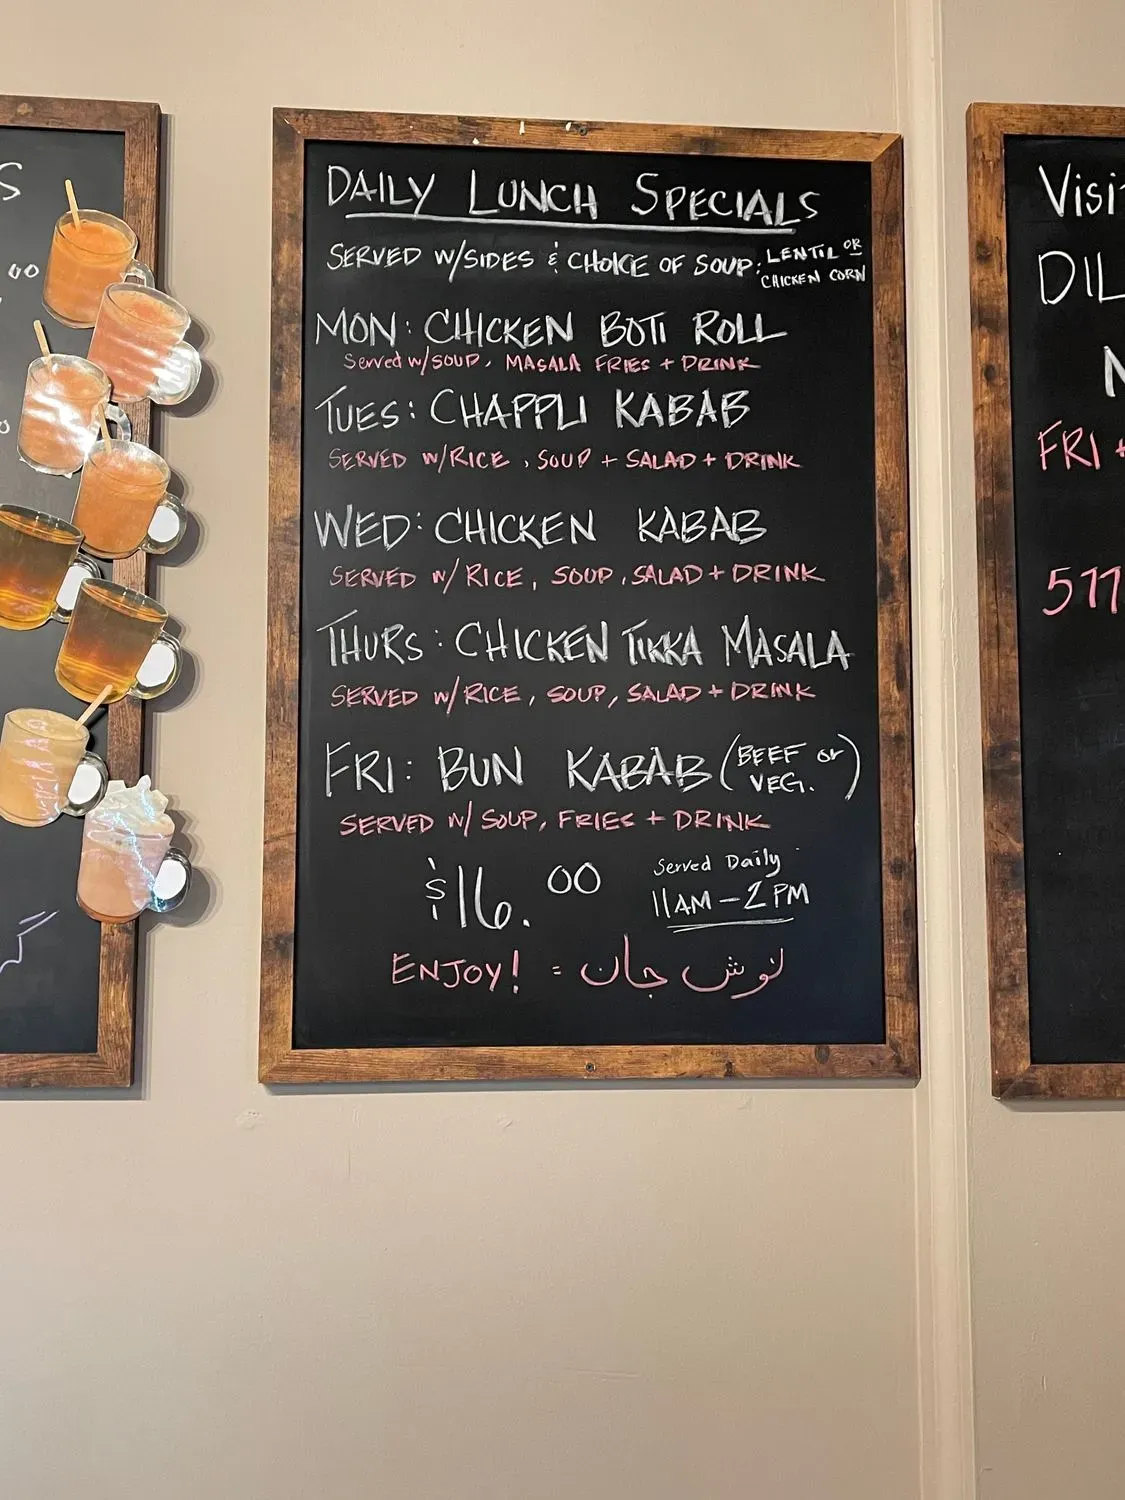 DAILY LUNCH SPECIALS
SERVED W/SIDES & CHOICE OF SOUP: LENTIL OR
CHICKEN CORN
MON: CHICKEN BOTI ROLL
Served W/SOUP, MASALA FRIES + DRINK
TUES: CHAPPLI KABAB
SERVED W/RICE, SOUP + SALAD + DRINK
WED: CHICKEN KABAB
SERVED W/ RICE, SOUP, SALAD + DRINK
THURS: CHICKEN TIKKA MASALA
SERVED W/ RICE, SOUP, SALAD + DRINK
FRI: BUN KABAB (BEEF or
VEG.)
SERVED W/ SOUP, FRIES + DRINK
$16.00
Served Daily
11AM - 2PM
ENJOY! = نوش جان
S
00
Visi
DIL
FRI +
577